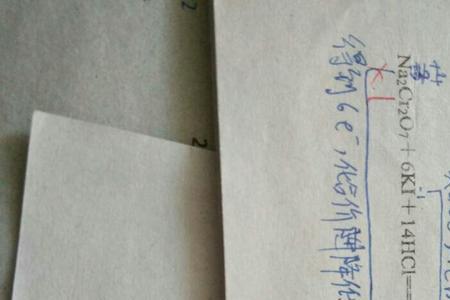 得到6e⁻,化合价降低
Na₂Cr₂O₇+6KI+14HCl=
-1
2
2